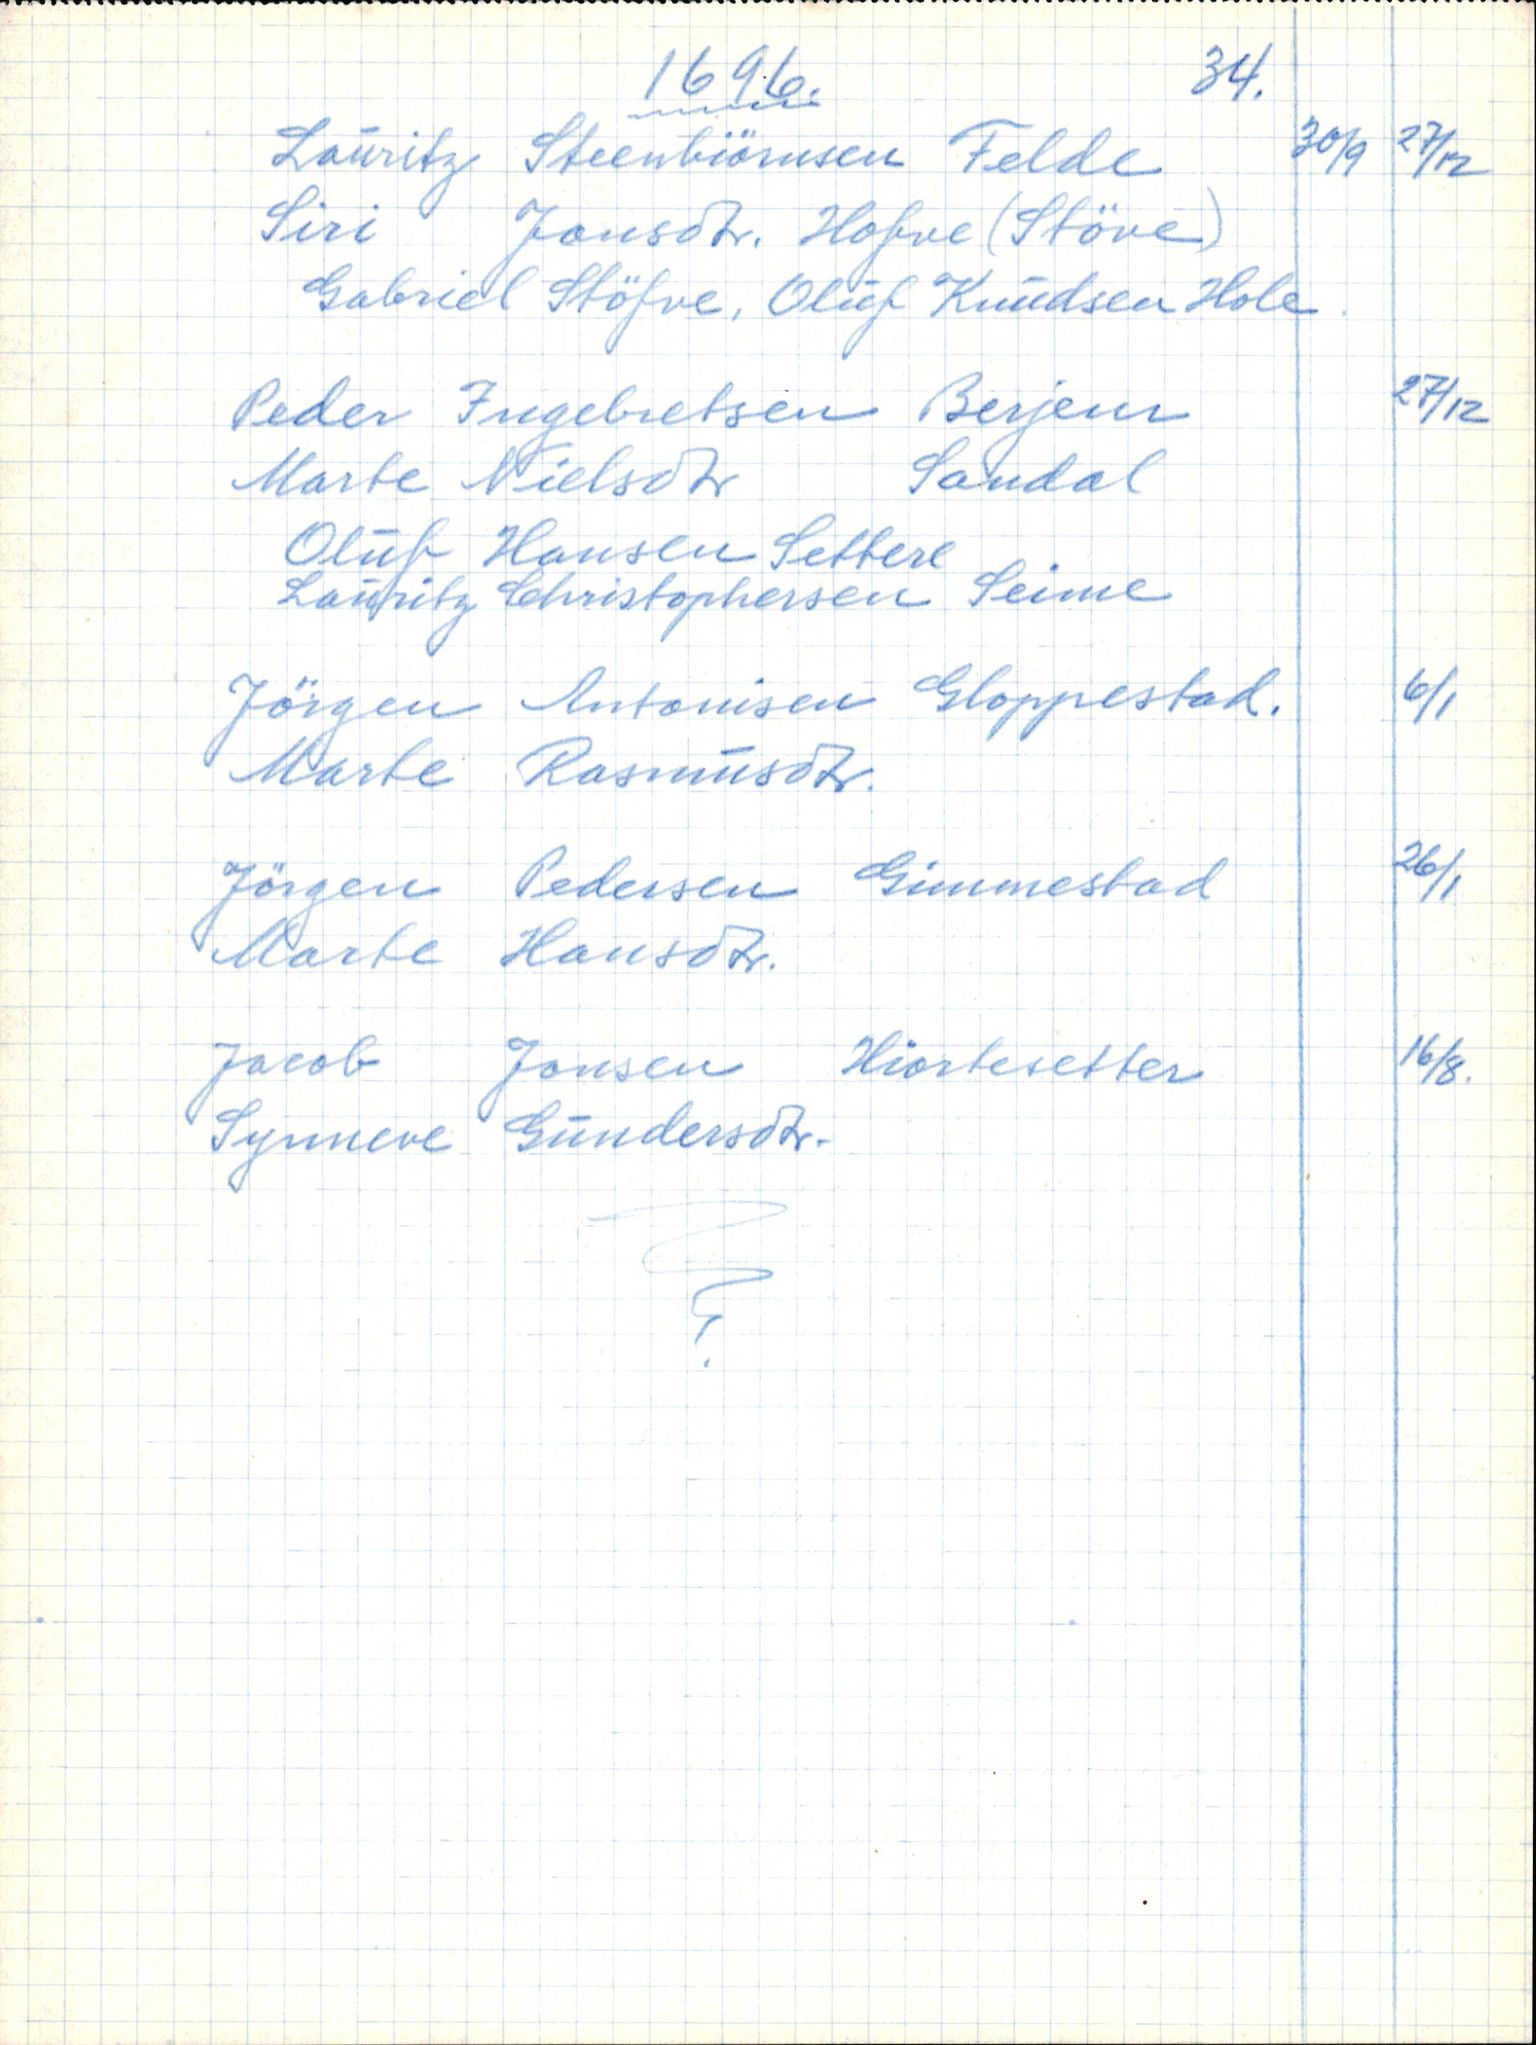 1696. 34.
Lauritz Steenbiörnsen Felde 30/9 27/12
Siri Jonsdtr. Hofve (Stöve)
Gabriel Stöfve, Oluf Knudsen Hole.
Peder Ingebretsen Berjem 27/12
Marte Nielsdtr Sandal
Oluf Hansen Settere
Lauritz Christophersen Seime
Jörgen Antonisen Gloppestad. 6/1
Marte Rasmusdtr.
Jörgen Pedersen Gimmestad 26/1
Marte Hansdtr.
Jacob Jonsen Hiortesetter 16/8.
Synneve Gundersdtr.